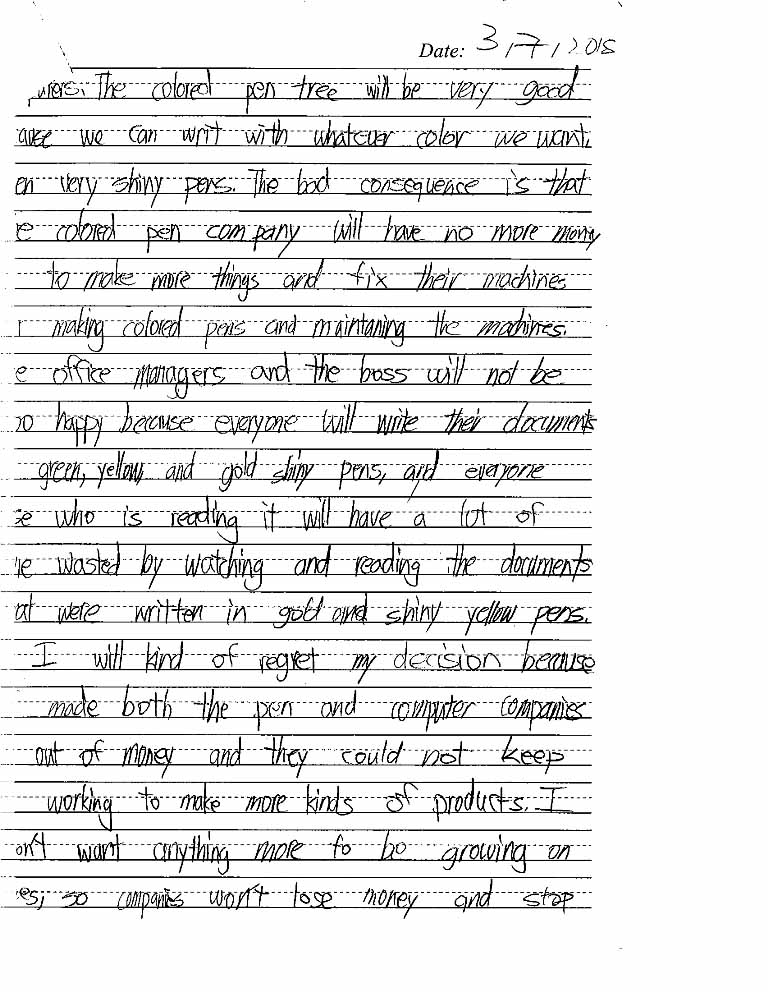 Date: 3/7/2015
urers. The colored pen tree will be very good
ause we can writ with whatever color we want,
en very shiny pens. The bad consequence is that
e colored pen company will have no more mony
to make more things and fix their machines
r making colored pens and maintaning the machines.
e office managers and the boss will not be
oo happy because everyone will write their documents
green, yellow, and gold shiny pens, and everyone
se who is reading it will have a lot of
ne wasted by watching and reading the documents
at were written in gold and shiny yellow pens.
I will kind of regret my decision because
made both the pen and computer companies
out of money and they could not keep
working to make more kinds of products. I
on't want anything more to be growing on
es, so companies won't lose money and stop